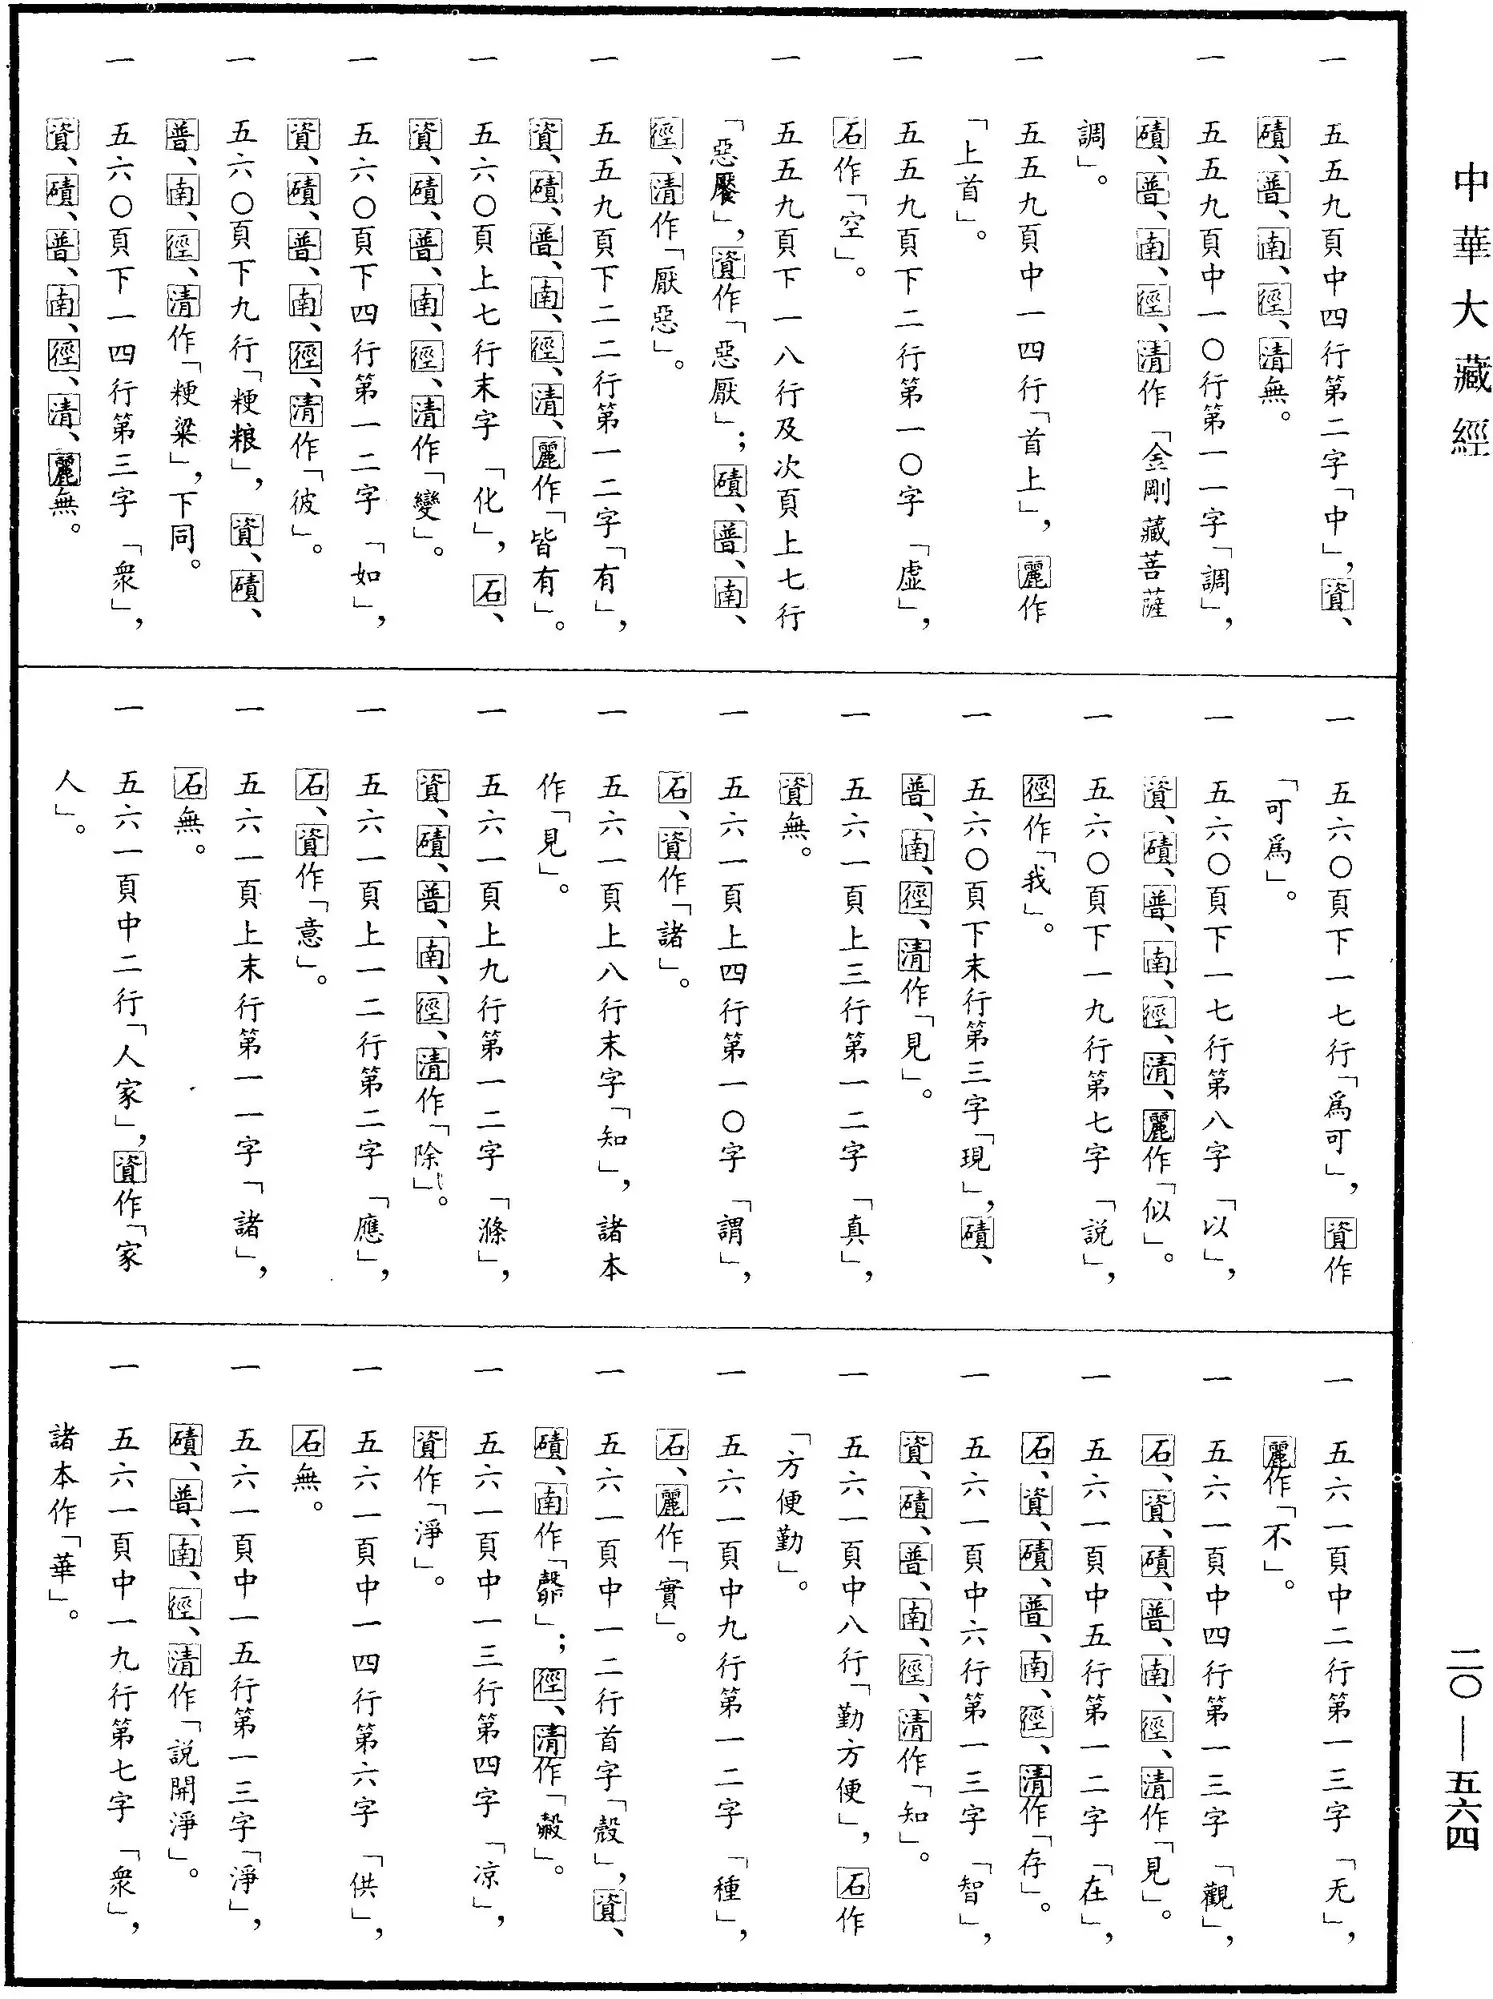 中華大藏經
二〇—五六四
一 五五九頁中四行第二字「中」，資、
磧、普、南、徑、清無。
一 五五九頁中一〇行第一一字「調」，
磧、普、南、徑、清作「金剛藏菩薩
調」。
一 五五九頁中一四行「首上」，麗作
「上首」。
一 五五九頁下二行第一〇字「虛」，
石作「空」。
一 五五九頁下一八行及次頁上七行
「惡饜」，資作「惡厭」；磧、普、南、
徑、清作「厭惡」。
一 五五九頁下二二行第一二字「有」，
資、磧、普、南、徑、清、麗作「皆有」。
一 五六〇頁上七行末字「化」，石、
資、磧、普、南、徑、清作「變」。
一 五六〇頁下四行第一二字「如」，
資、磧、普、南、徑、清作「彼」。
一 五六〇頁下九行「粳粮」，資、磧、
普、南、徑、清作「粳粱」，下同。
一 五六〇頁下一四行第三字「衆」，
資、磧、普、南、徑、清、麗無。
一 五六〇頁下一七行「爲可」，資作
「可爲」。
一 五六〇頁下一七行第八字「以」，
資、磧、普、南、徑、清、麗作「似」。
一 五六〇頁下一九行第七字「説」，
徑作「我」。
一 五六〇頁下末行第三字「現」，磧、
普、南、徑、清作「見」。
一 五六一頁上三行第一二字「真」，
資無。
一 五六一頁上四行第一〇字「謂」，
石、資作「諸」。
一 五六一頁上八行末字「知」，諸本
作「見」。
一 五六一頁上九行第一二字「滌」，
資、磧、普、南、徑、清作「除」。
一 五六一頁上一二行第二字「應」，
石、資作「意」。
一 五六一頁上末行第一一字「諸」，
石無。
一 五六一頁中二行「人家」，資作「家
人」。
一 五六一頁中二行第一三字「无」，
麗作「不」。
一 五六一頁中四行第一三字「觀」，
石、資、磧、普、南、徑、清作「見」。
一 五六一頁中五行第一二字「在」，
石、資、磧、普、南、徑、清作「存」。
一 五六一頁中六行第一三字「智」，
資、磧、普、南、徑、清作「知」。
一 五六一頁中八行「勤方便」，石作
「方便勤」。
一 五六一頁中九行第一二字「種」，
石、麗作「實」。
一 五六一頁中一二行首字「殼」，資、
磧、南作「」；徑、清作「」。
一 五六一頁中一三行第四字「凉」，
資作「淨」。
一 五六一頁中一四行第六字「供」，
石無。
一 五六一頁中一五行第一三字「淨」，
磧、普、南、徑、清作「説開淨」。
一 五六一頁中一九行第七字「衆」，
諸本作「華」。